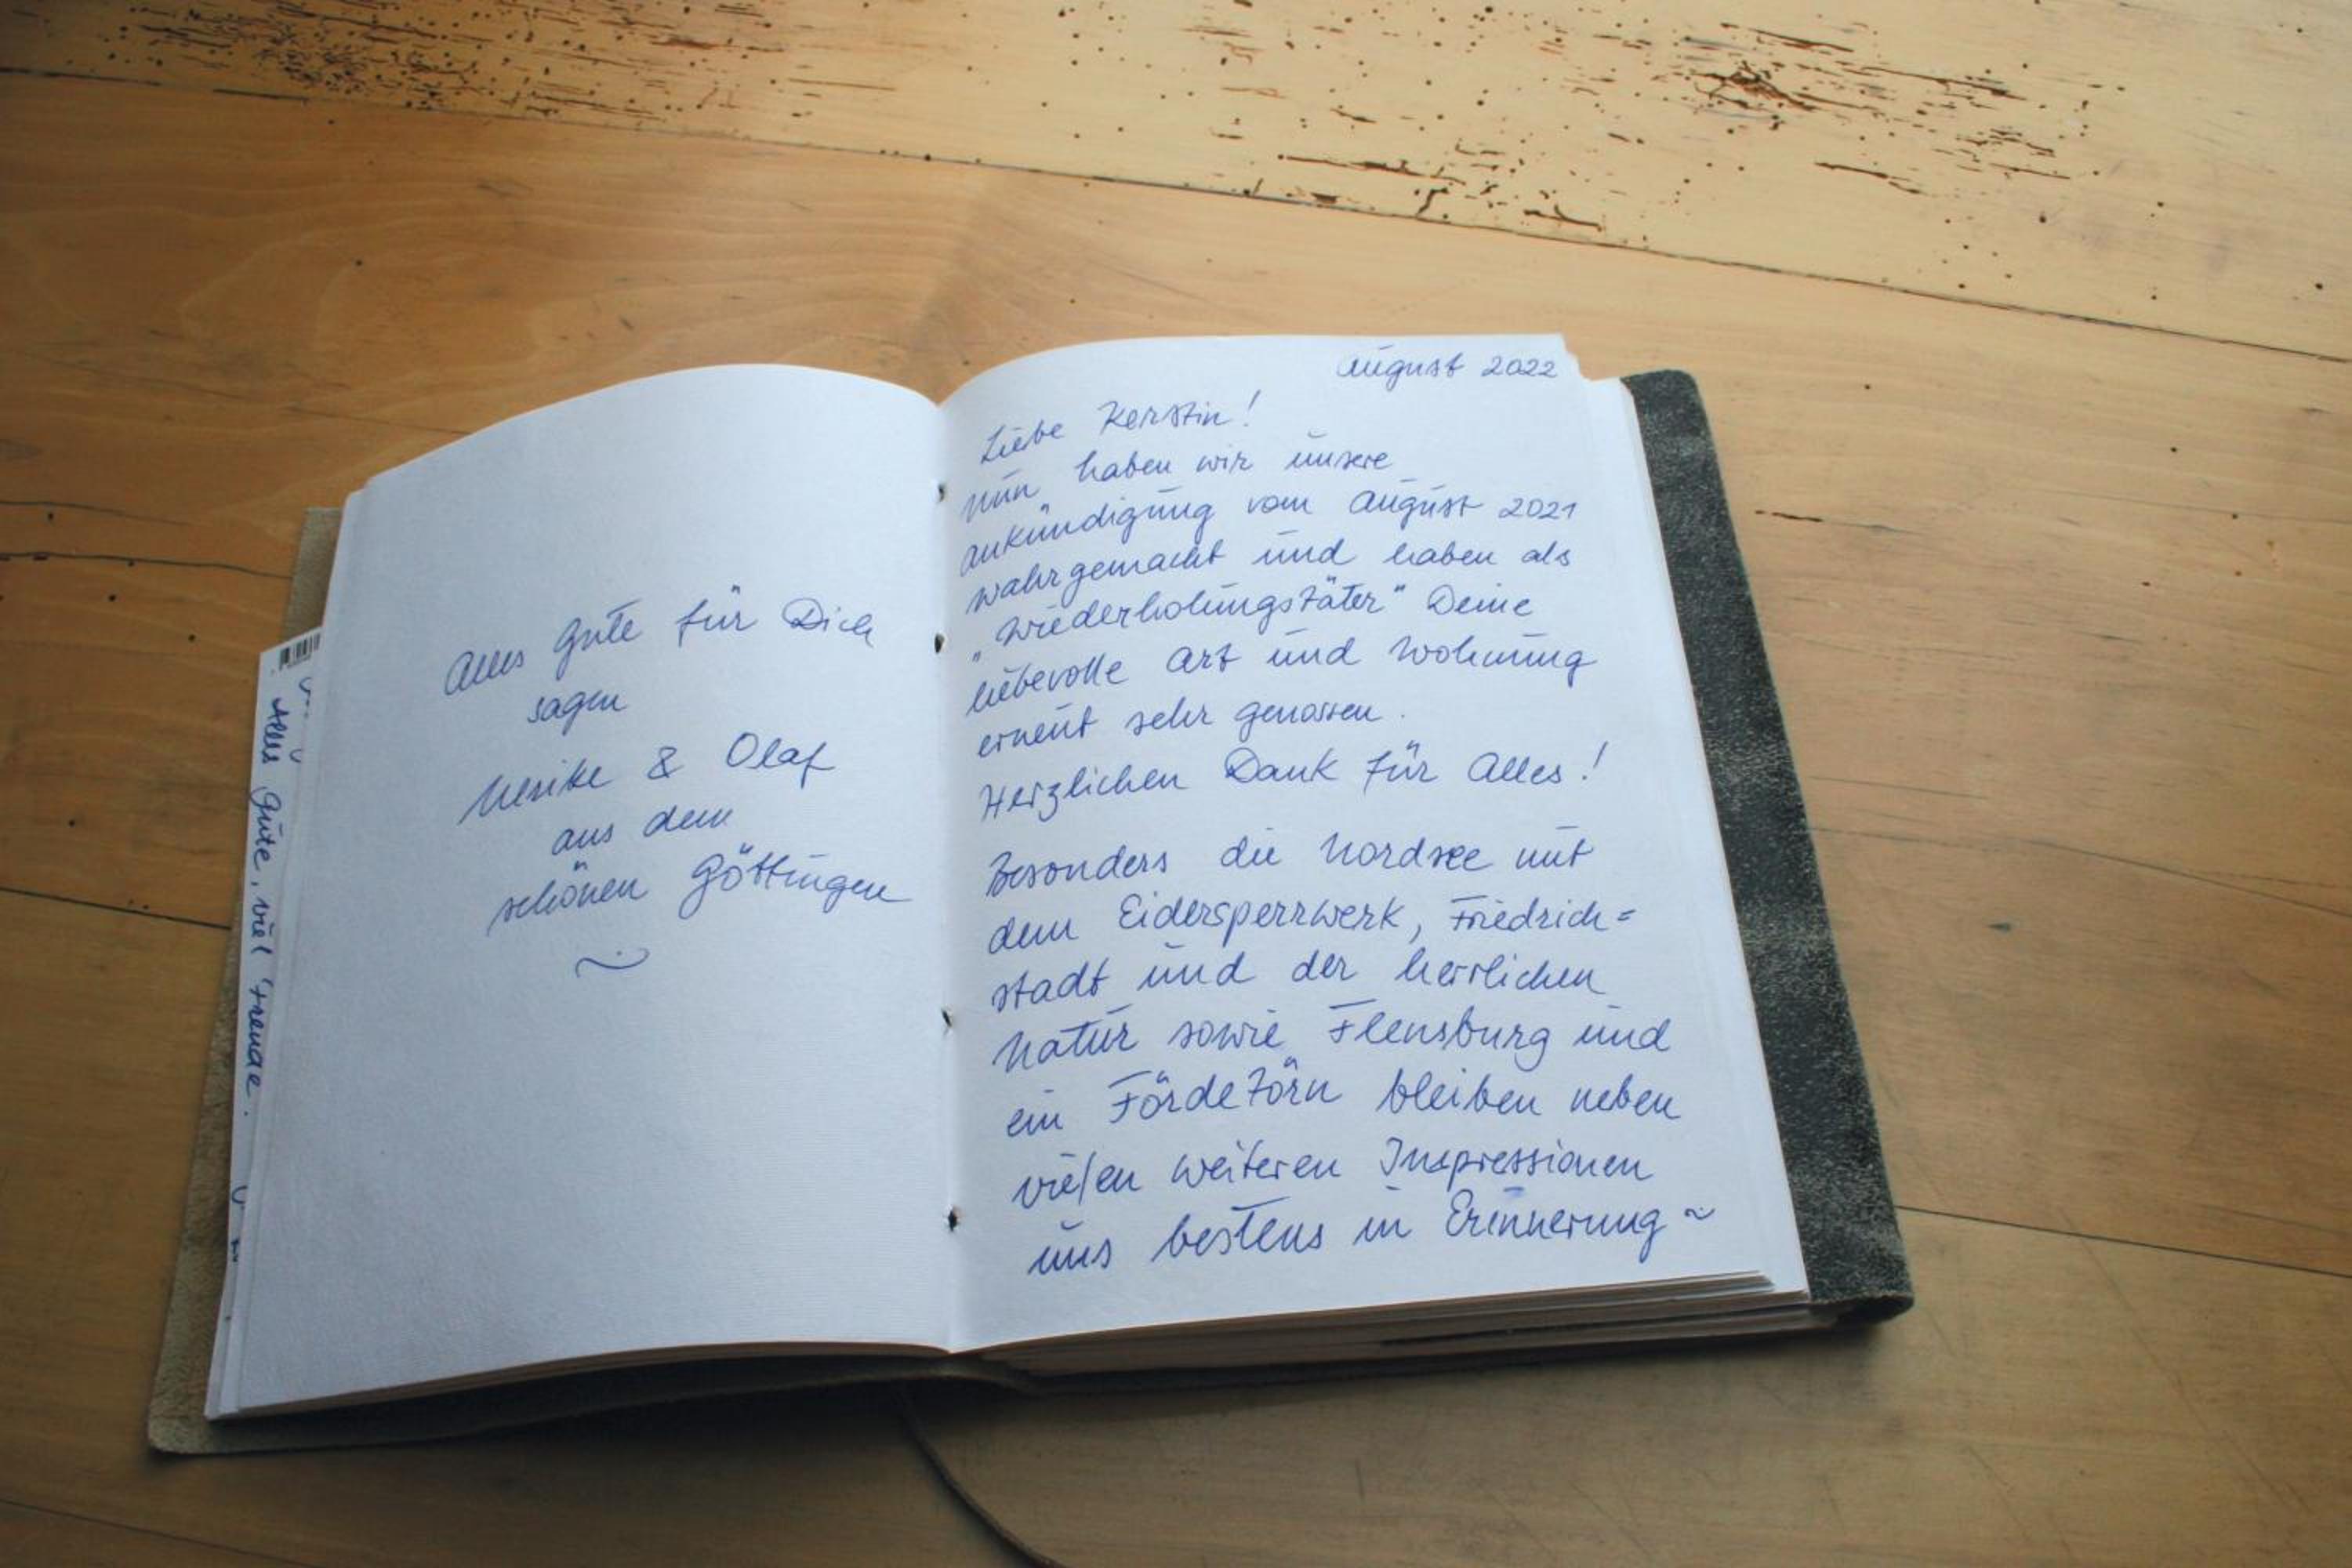 Alles Gute für Dich
sagen
Ulrike & Olaf
aus dem
schönen Göttingen
~
August 2022
Liebe Kerstin!
Nun haben wir unsere
Ankündigung vom August 2021
wahrgemacht und haben als
„Wiederholungstäter“ Deine
liebevolle Art und Wohnung
erneut sehr genossen.
Herzlichen Dank für Alles!
Besonders die Nordsee mit
dem Eidersperrwerk, Friedrich=
stadt und der herrlichen
Natur sowie Flensburg und
ein Fördetörn bleiben neben
vielen weiteren Impressionen
uns bestens in Erinnerung ~
Alles Gute, viel Freude.